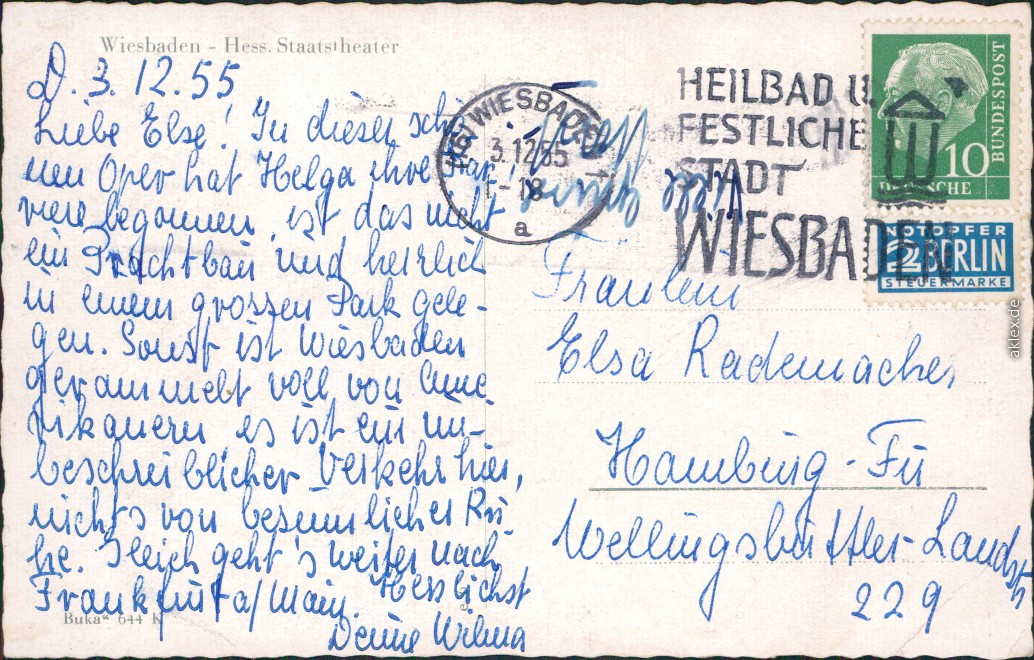 Wiesbaden - Hess. Staatstheater
D. 3. 12. 55
Liebe Else! In dieser schö-
nen Oper hat Helga ihre Kar-
riere begonnen, ist das nicht
ein Prachtbau und herrlich
in einem grossen Park gele-
gen. Sonst ist Wiesbaden
gerammelt voll von Ame
rikanern es ist ein un-
beschreiblicher Verkehr hier,
nichts von besinnlicher Ru-
he. Gleich geht's weiter nach
Frankfurt a/Main. Herzlichst
Deine Wilma
Buka 644 K
(16) WIESBADEN 1
3.12.55
-18
a
HEILBAD U.
FESTLICHE
STADT
WIESBADEN
10
DEUTSCHE
BUNDESPOST
NOTOPFER
2 BERLIN
STEUERMARKE
Fräulein
Elsa Rademacher
Hamburg-Fu
Wellingsbüttler-Landstr
229
aklex.de